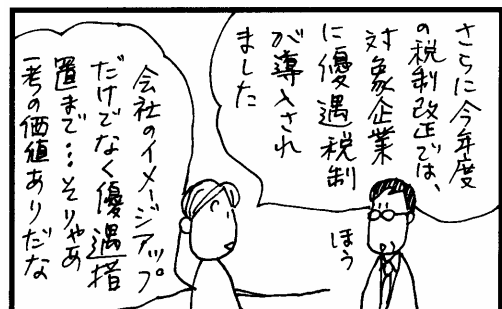 さらに今年度
の税制改正では、
対象企業
に優遇税制
が導入され
ました
ほう
会社のイメージアップ
だけでなく優遇措
置まで…そりゃあ
一考の価値ありだな